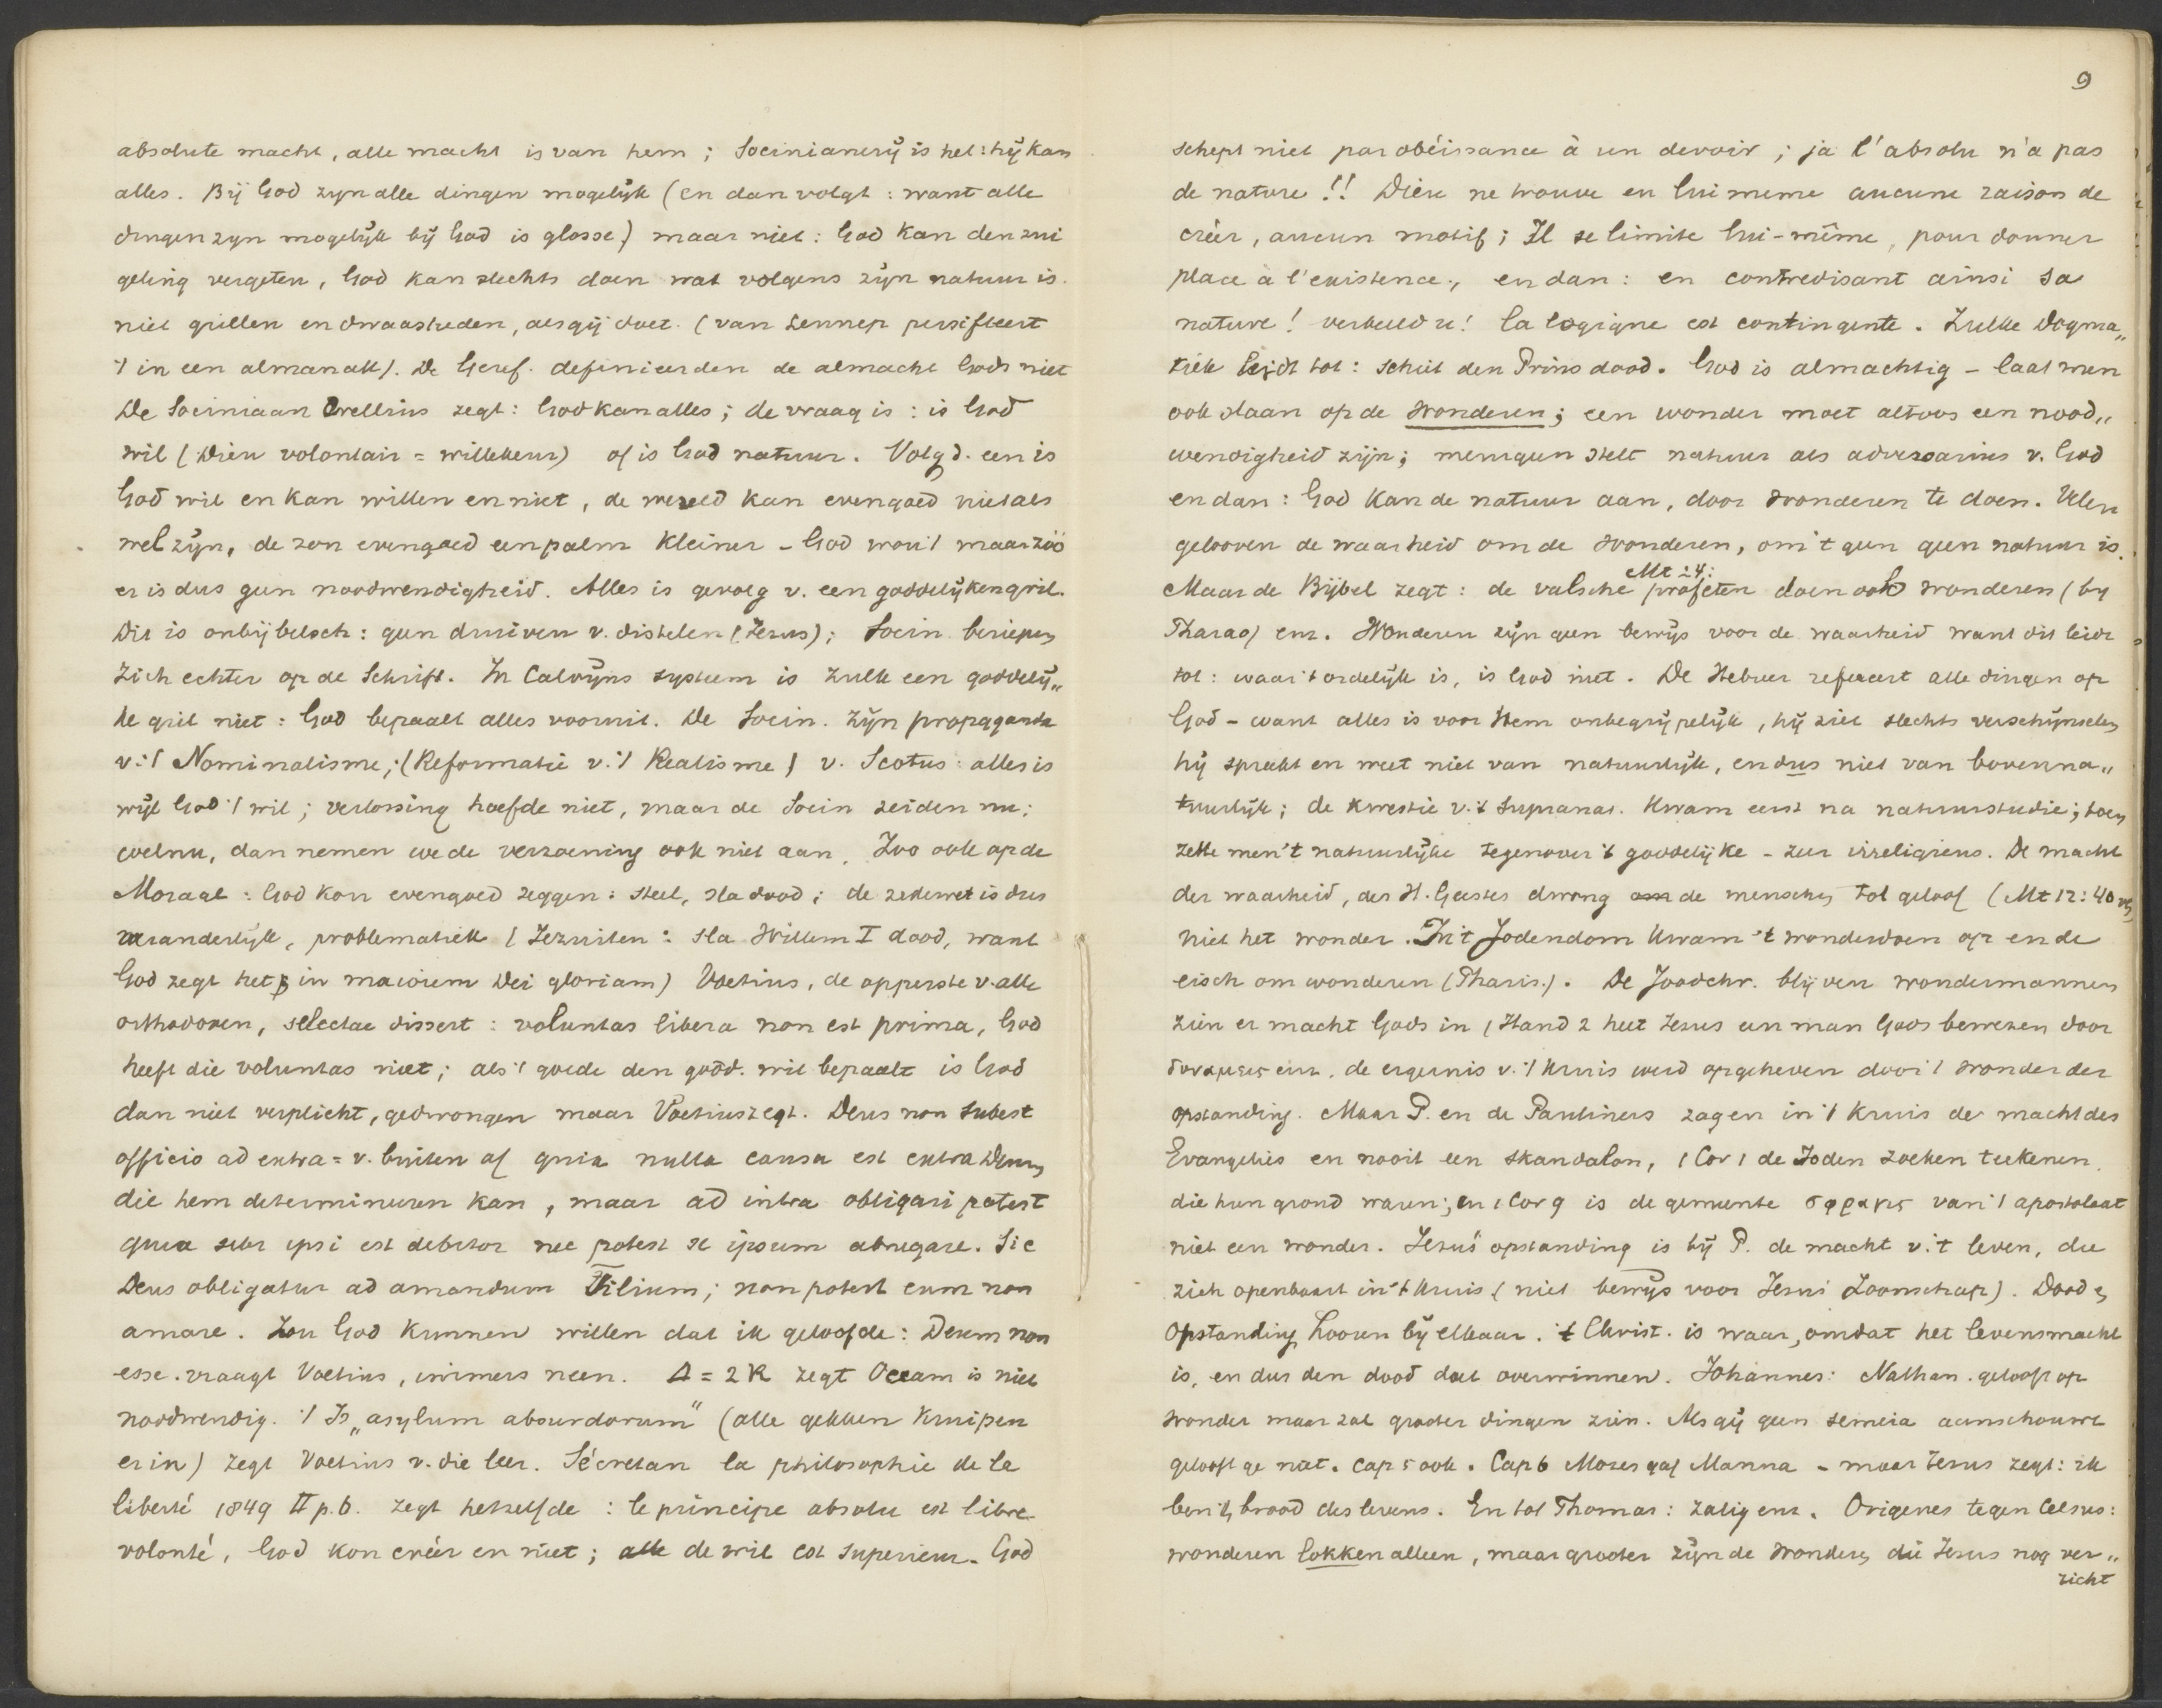 absolute macht, alle macht is van hem; Socinianerij is het: hij kan
alles. Bij God zyn alle dingen mogelijk (en dan volgt: want alle
dingen zyn mogelijk bij God is glosse) maar niet: God kan den zui
geling vergeten, God kan slechts doen wat volgens zijn natuur is.
niet grillen en dwaasheden, als gij doet. (van Lennep persifleert
't in een almanak). De Geref. definieerden de almacht Gods niet
De Sociniaan Crellius zegt: God kan alles; de vraag is: is God
wil (Dieu volontair = willekeur) of is God natuur. Volg d. een is
God wil en kan willen en niet, de wereld kan evengoed niet als
wel zijn, de zon evengoed een palm kleiner - God wou 't maar zóó
er is dus geen noodwendigheid. Alles is gevolg v. een goddelijken gril.
Dit is onbijbelsch: geen druiven v. distelen (Jezus); Socin. beriepen
zich echter op de Schrift. In Calvijns systeem is zulk een goddelij„
ke gril niet: God bepaalt alles vooruit. De Socin. zijn propaganda
v. 't Nominalisme; (Reformatie v. 't Realisme) v. Scotus: alles is
wijl God 't wil; verlossing hoefde niet, maar de Socin zeiden nu:
welnu, dan nemen we de verzoening ook niet aan. Zoo ook op de
Moraal: God kon evengoed zeggen: steel, sla dood; de zedewet is dus
veranderlijk, problematiek (Jezuiten: sla Willem I dood, want
God zegt het in maiorem Dei gloriam) Voetius, de opperste v. alle
orthodoxen, selectae dissert: voluntas libera non est prima, God
heeft die voluntas niet; als 't goede den godd. wil bepaalt is God
dan niet verplicht, gedwongen maar Voetius zegt. Deus non subest
officio ad extra = v. buiten af quia nulla causa est extra Deum
die hem determineren kan, maar ad intra obligari potest
quia sibi ipsi est debitor nec potest se ipsum abnegare. Sic
Deus obligatur ad amandum Filium; non potest eum non
amare. Zou God kunnen willen dat ik geloofde: Deum non
esse. vraagt Voetius, immers neen. Δ = 2 R zegt Occam is niet
noodwendig. 't Is „asylum absurdorum" (alle gekken kruipen
er in) zegt Voetius v. die leer. Sécretan la philosophie de la
liberté 1849 II p. 6. zegt hetzelfde: le principe absolu est libre
volonté, God kon créér en niet; de wil est superieur. God

9
schept niet par obéissance à un devoir; ja l'absolu n'a pas
de nature!! Dieu ne trouve en lui meme aucune raison de
créer, aucun motif; Il se limite lui-même, pour donner
place à l'existence., en dan: en contredisant ainsi sa
nature! verbeeld u! la logique est contingente. Zulke Dogma„
tiek leidt tot: schiet den Prins dood. God is almachtig - laat men
ook slaan op de wonderen; een wonder moet altoos een nood„
wendigheid zijn; menigeen stelt natuur als adversarius v. God
en dan: God kan de natuur aan, door wonderen te doen. Velen
gelooven de waarheid om de wonderen, om 't geen geen natuur is.
Mt 24:
Maar de Bijbel zegt: de valsche profeten doen ook wonderen (by
Pharao) enz. Wonderen zijn geen bewijs voor de waarheid want dit leidt
tot: waar 't ordelijk is, is God niet. De Hebreer refereert alle dingen op
God - want alles is voor Hem onbegrijpelijk, hij ziet slechts verschijnselen
hij spreekt en weet niet van natuurlijk, en dus niet van bovenna„
tuurlijk; de kwestie v. 't Supranat. kwam eerst na natuurstudie; toen
zette men 't natuurlijke tegenover 't goddelijke - zeer irreligieus. De macht
der waarheid, des H. Geestes dwong de menschen tot geloof (Mt 12: 40
niet het wonder. In 't Jodendom kwam 't wonderdoen op en de
eisch om wonderen (Pharis.). De Joodchr. blijven wondermannen
zien er macht Gods in (Hand 2 heet Jezus een man Gods bewezen door
δυναμεις enz. de ergernis v. 't kruis werd opgeheven door 't wonder der
opstanding. Maar P. en de Pauliners zagen in 't kruis de macht des
Evangelies en nooit een skandalon, 1 Cor 1 de Joden zoeken teekenen.
die hun grond waren; in 1 Cor 9 is de gemeente σφραγις van 't apostolaat
niet een wonder. Jezus' opstanding is bij P. de macht v. 't leven, die
zich openbaart in 't kruis (niet bewijs voor Jezus' Zoonschap). Dood en
Opstanding hooren bij elkaar. 't Christ. is waar, omdat het levensmacht
is, en dus den dood doet overwinnen. Johannes: Nathan. gelooft op
wonder maar zal grooter dingen zien. Als gij geen semeia aanschouwt
gelooft ge niet. Cap 5 ook. Cap 6 Mozes gaf Manna - maar Jezus zegt: ik
ben 't brood des levens. En tot Thomas: zalig enz. Origenes tegen Celsus:
wonderen lokken alleen, maar grooter zijn de wonderen die Jezus nog ver„
richt